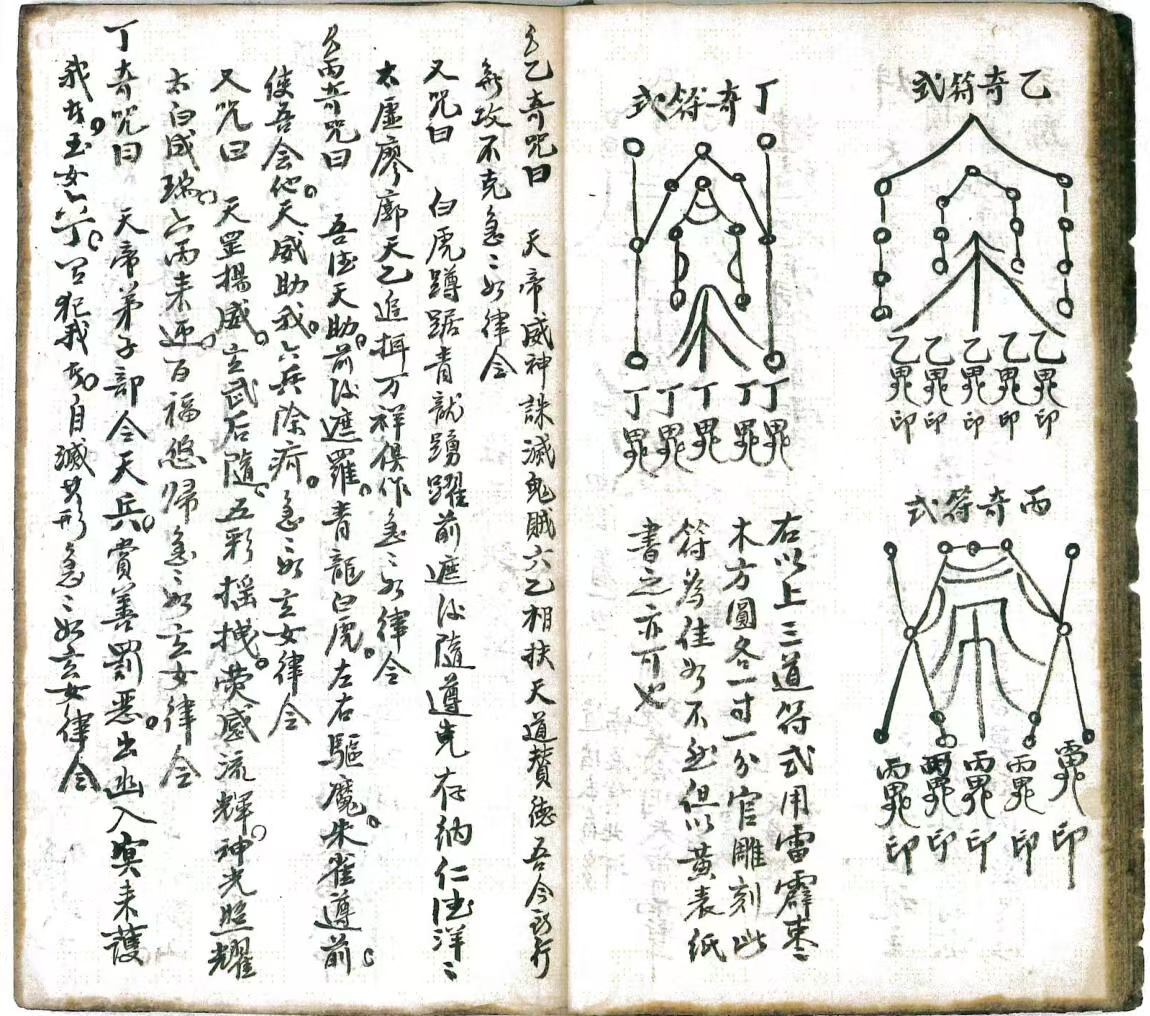 乙奇符式
乙乙乙乙乙
印印印印印
丙奇符式
丙丙丙丙
印印印印印
丁奇符式
丁丁丁丁丁
右以上三道符式用雷霹枣
木方圓各一寸一分官雕刻此
符為佳如不然但以黃表紙
書之亦可也
乙奇咒曰 天帝威神誅滅鬼賊六乙相扶天道贊德吾今所行
無攻不克急〻如律令
又咒曰 白虎蹲踞青龍踴躍前遮後隨遵先存納仁德洋〻
太虛廖廓天乙追捕万祥俱作急〻如律令
丙奇咒曰 吾德天助前後遮羅青龍白虎左右驅魔朱雀遵前
使吾会他天威助我六兵除病急〻如玄女律令
又咒曰 天罡揚威玄武后隨五彩搖拽熒惑流輝神光照耀
太白成瑞六丙来迎百福悠归急〻如玄女律令
丁奇咒曰 天帝弟子部令天兵賞善罰惡出幽入冥来護
我者玉女六丁若犯我者自滅其形急〻如玄女律令